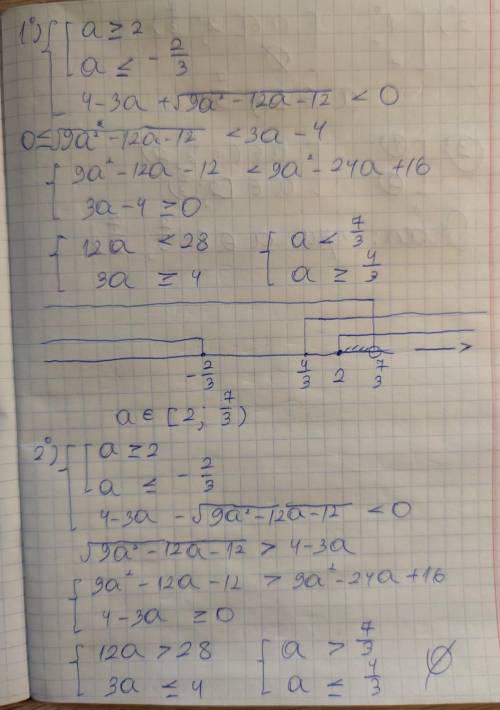 1°) { [ a ≥ 2
a ≤ -2/3
4-3a + √(9a²-12a-12) < 0
0 ≤ √(9a²-12a-12) < 3a-4
{ 9a²-12a-12 < 9a²-24a+16
3a-4 ≥ 0
{ 12a < 28 { a < 7/3
3a ≥ 4 a ≥ 4/3
-2/3 4/3 2 7/3
a ∈ [2; 7/3)
2°) { [ a ≥ 2
a ≤ -2/3
4-3a - √(9a²-12a-12) < 0
√(9a²-12a-12) > 4-3a
{ 9a²-12a-12 > 9a²-24a+16
4-3a ≥ 0
{ 12a > 28 { a > 7/3 ∅
3a ≤ 4 a ≤ 4/3